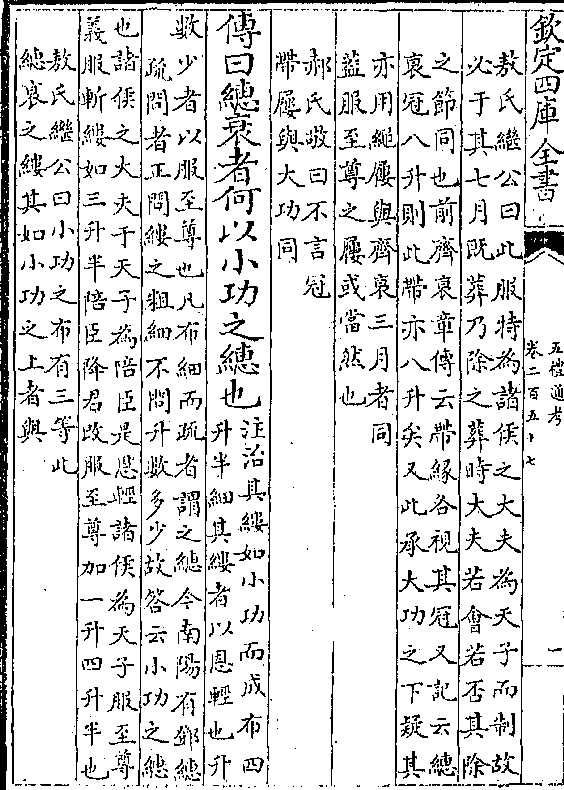 欽定四庫全書
五禮通考
卷二百五十七
一
敖氏繼公曰此服特為諸侯之大夫為天子而制故
必于其七月既葬乃除之葬時大夫若會若否其除
之節同也前齊衰章傳云帶緣各視其冠又記云繐
衰冠八升則此帶亦八升矣又此承大功之下疑其
亦用繩屨與齊衰三月者同
蓋服至尊之屨或當然也
郝氏敬曰不言冠
帶屨與大功同
傳曰繐衰者何以小功之繐也
注治其縷如小功而成布四
升半細其縷者以恩輕也升
數少者以服至尊也凡布細而疏者謂之繐今南陽有鄧繐
疏問者正問縷之粗細不問升數多少故答云小功之繐
也諸侯之大夫于天子為陪臣是恩輕諸侯為天子服至尊
義服斬縷如三升半陪臣降君改服至尊加一升四升半也
敖氏繼公曰小功之布有三等此
繐衰之縷其如小功之上者與